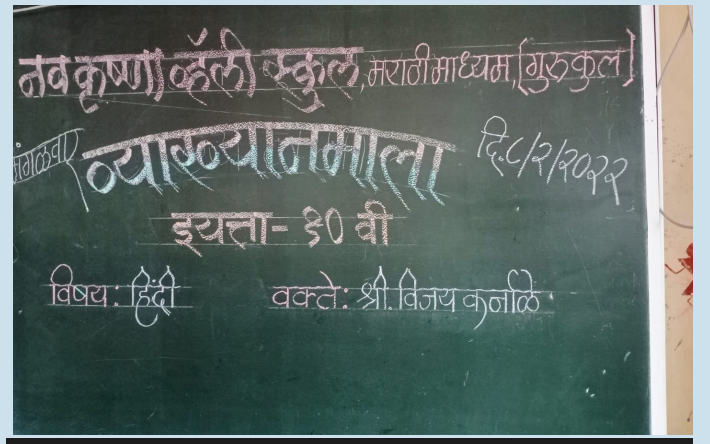 नव कृष्णा व्हॅली स्कुल, मराठी माध्यम, (गुरुकुल)
मंगळवार व्याख्यानमाला दि.८/२/२०२२
इयत्ता - १० वी
विषय : हिंदी वक्ते : श्री. विजय कर्नाळे.